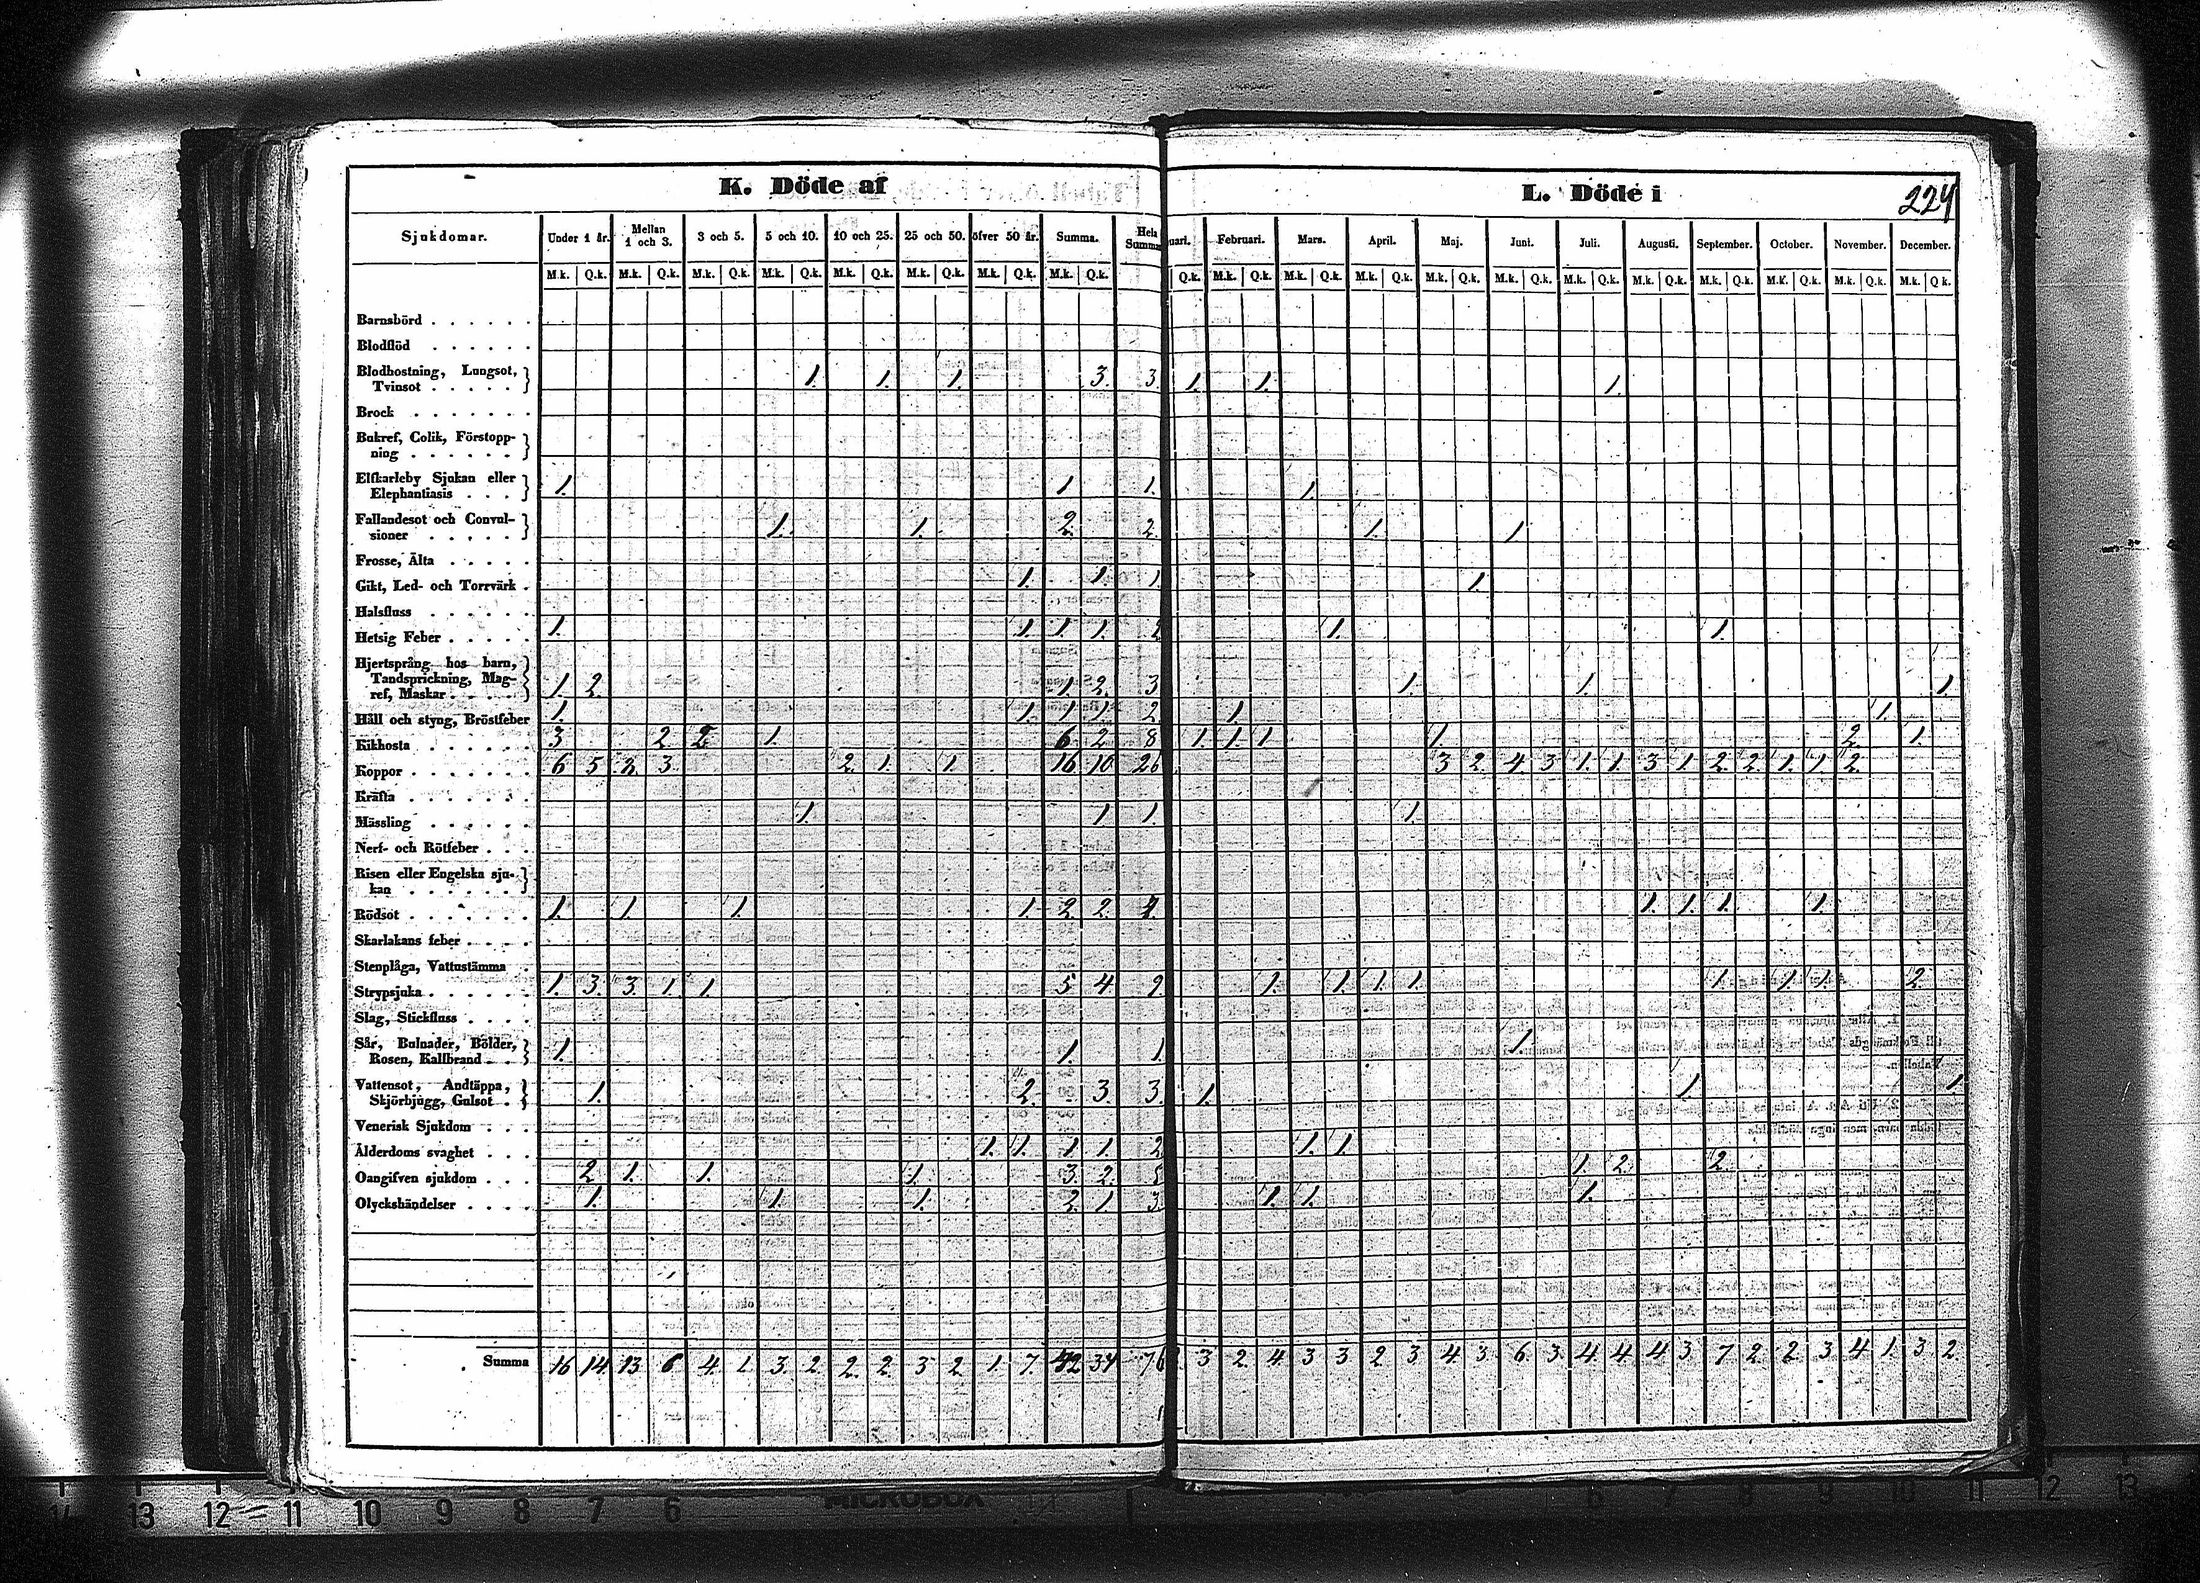 K. Döde af
L. Döde i
224
Sjukdomar. Under 1 år. Mellan 1 och 3. 3 och 5. 5 och 10. 10 och 25. 25 och 50. öfver 50 år. Summa. Hela Summa
uari. Februari. Mars. April. Maj. Juni. Juli. Augusti. September. October. November. December.
M.k. Q.k. M.k. Q.k. M.k. Q.k. M.k. Q.k. M.k. Q.k. M.k. Q.k. M.k. Q.k. M.k. Q.k.
Q.k. M.k. Q.k. M.k. Q.k. M.k. Q.k. M.k. Q.k. M.k. Q.k. M.k. Q.k. M.k. Q.k. M.k. Q.k. M.k. Q.k. M.k. Q.k. M.k. Q k.
Barnsbörd . . . . . .
Blodflöd . . . . . .
Blodhostning, Lungsot,
Tvinsot . . . . . 1. 1. 1. 3. 3. 1. 1. 1.
Brock . . . . . . .
Bukref, Colik, Förstopp-
ning . . . . . .
Elfkarleby Sjukan eller
Elephantiasis . . . 1. 1 1. 1.
Fallandesot och Convul-
sioner . . . . . 1. 1. 2. 2 1. 1.
Frosse, Älta . . . . .
Gikt, Led- och Torrvärk . 1. 1. 1. 1.
Halsfluss . . . . . .
Hetsig Feber . . . . . 1. 1. 1. 1. 2 1. 1.
Hjertsprång hos barn,
Tandsprickning, Mag-
ref, Maskar . . . . 1. 2. 1. 2. 3 1. 1. 1.
Håll och styng, Bröstfeber 1. 1. 1. 1. 2 1. 1.
Kikhosta . . . . . . 3. 2. 2 1. 6 2 8 1. 1. 1 1. 2. 1.
Koppor . . . . . . . 6 5 3. 3. 2. 1. 1. 16 10 26 3 2. 4. 3 1. 1. 3 1. 2. 2. 1. 1. 2.
Kräfta . . . . . . .
Mässling . . . . . . 1. 1 1. 1.
Nerf- och Rötfeber . . .
Risen eller Engelska sju-
kan . . . . . .
Rödsot . . . . . . . 1. 1. 1. 1. 2 2. 4. 1. 1. 1. 1.
Skarlakans feber . . . .
Stenplåga, Vattustämma .
Strypsjuka . . . . . . 1. 3. 3. 1. 1. 5 4. 9. 1. 1. 1. 1. 1. 1. 1. 2.
Slag, Stickfluss . . . .
Sår, Bulnader, Bölder,
Rosen, Kallbrand . . 1. 1. 1. 1.
Vattensot, Andtäppa,
Skjörbjugg, Gulsot . 1. 2. 3. 3. 1. 1 1.
Venerisk Sjukdom . . .
Ålderdoms svaghet . . . 1. 1. 1 1. 2 1. 1.
Oangifven sjukdom . . . 2 1. 1. 1. 3. 2. 5 1. 2. 2.
Olyckshändelser . . . . 1. 1. 1. 2. 1 3. 1. 1. 1.
Summa 16 14. 13 6 4. 1. 3. 2. 2. 2. 3 2 1. 7. 42 34 76
3 2. 4. 3 3 2. 3 4. 3. 6 3. 4 4 4 3. 7 2 2 3 4 1. 3 2.